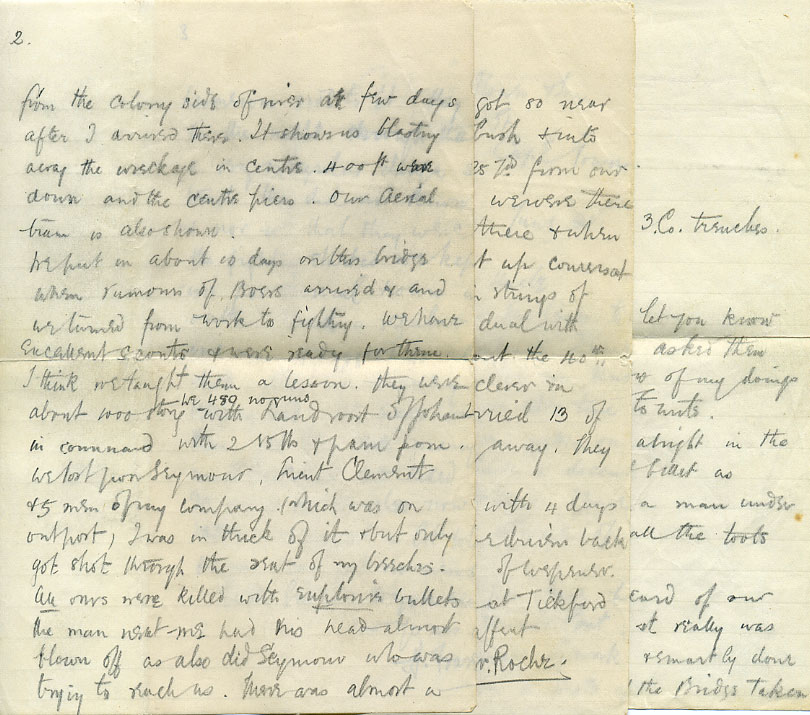 2.
from the colony side of river a few days
after I arrived there. It shows us blasting
away the wreckage in centre. 400 ft were
down and the centre piers. Our Aerial
tram is also shown.
We put in about 10 days on this bridge
when rumours of Boers arrived & and
we turned from work to fighting. We have
Excellent scouts & were ready for them.
I think we taught them a lesson. They were
we 480, no guns
about 1000 strong with Landroost
in command with 2 15 lbs & pom pom.
We lost poor Seymour, Lieut Clement
& 5 men of my company (which was on
outpost) I was in thick of it & but only
got shot through the seat of my breeches.
All ours were killed with explosive bullets
the man next me had his head almost
blown off as also did Seymour who was
trying to reach us. There was almost a
got so near
bush & into
25 yds from our
we were there
there & when
t up conversat
n strings of
dual with
out the 40
clever in
rried 13 of
away. They
with 4 days
e driven back
of Wepener.
at Tickford
affent
r. Roche.
3. Co. trenches.
let you know
asked them
w of my doings
to write.
alright in the
billet as
a man under
all the tools
eard of our
st really was
remarkly done
the Bridge Taken